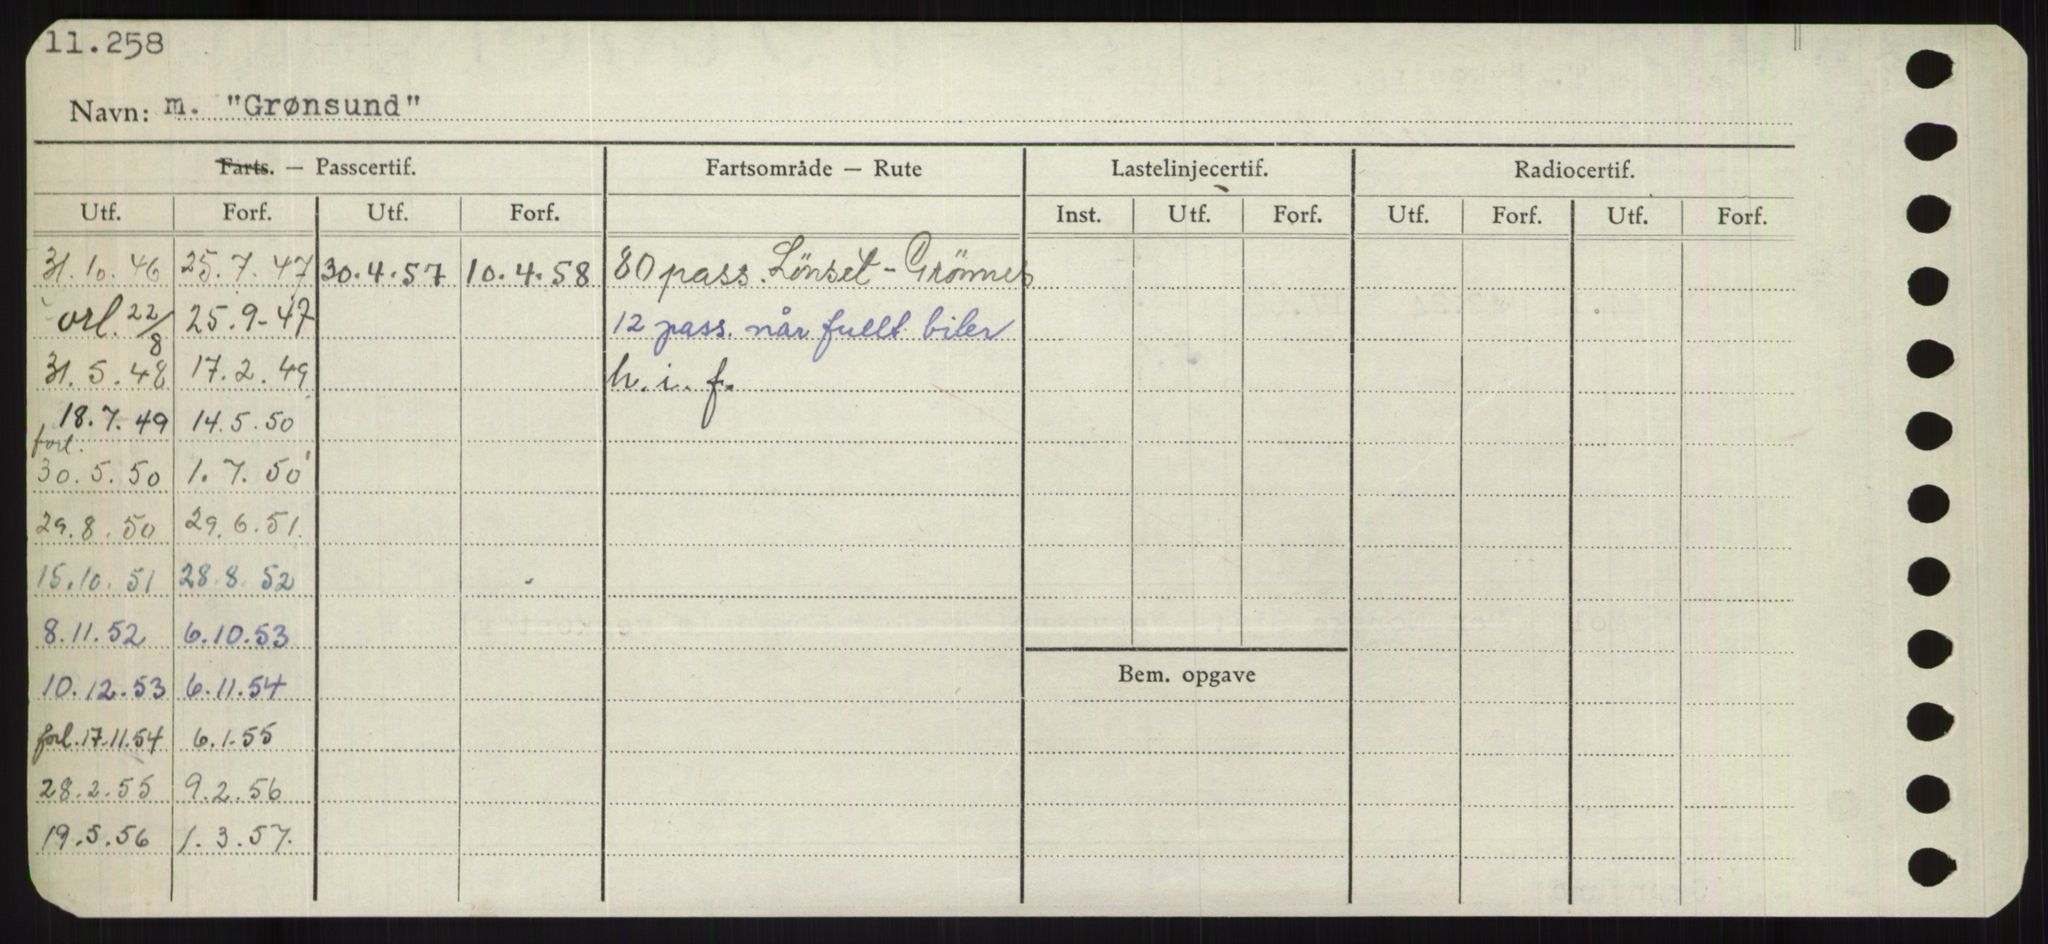 11.258
Navn: m. "Grønsund"
Farts. — Passcertif. Fartsområde — Rute Lastelinjecertif. Radiocertif.
Utf. Forf. Utf. Forf. Inst. Utf. Forf. Utf. Forf. Utf. Forf.
31.10.46 25.7.47 30.4.57 10.4.58 80 pass. Lönset - Grönnes
orl. 22/8 25.9.47 12 pass. når fullt biler
31.5.48 17.2.49 h.i.f.
18.7.49 14.5.50
forl.
30.5.50 1.7.50
29.8.50 29.6.51.
15.10.51 28.8.52
8.11.52 6.10.53
10.12.53 6.11.54
Bem. opgave
forl. 17.11.54 6.1.55
28.2.55 9.2.56
19.5.56 1.3.57.